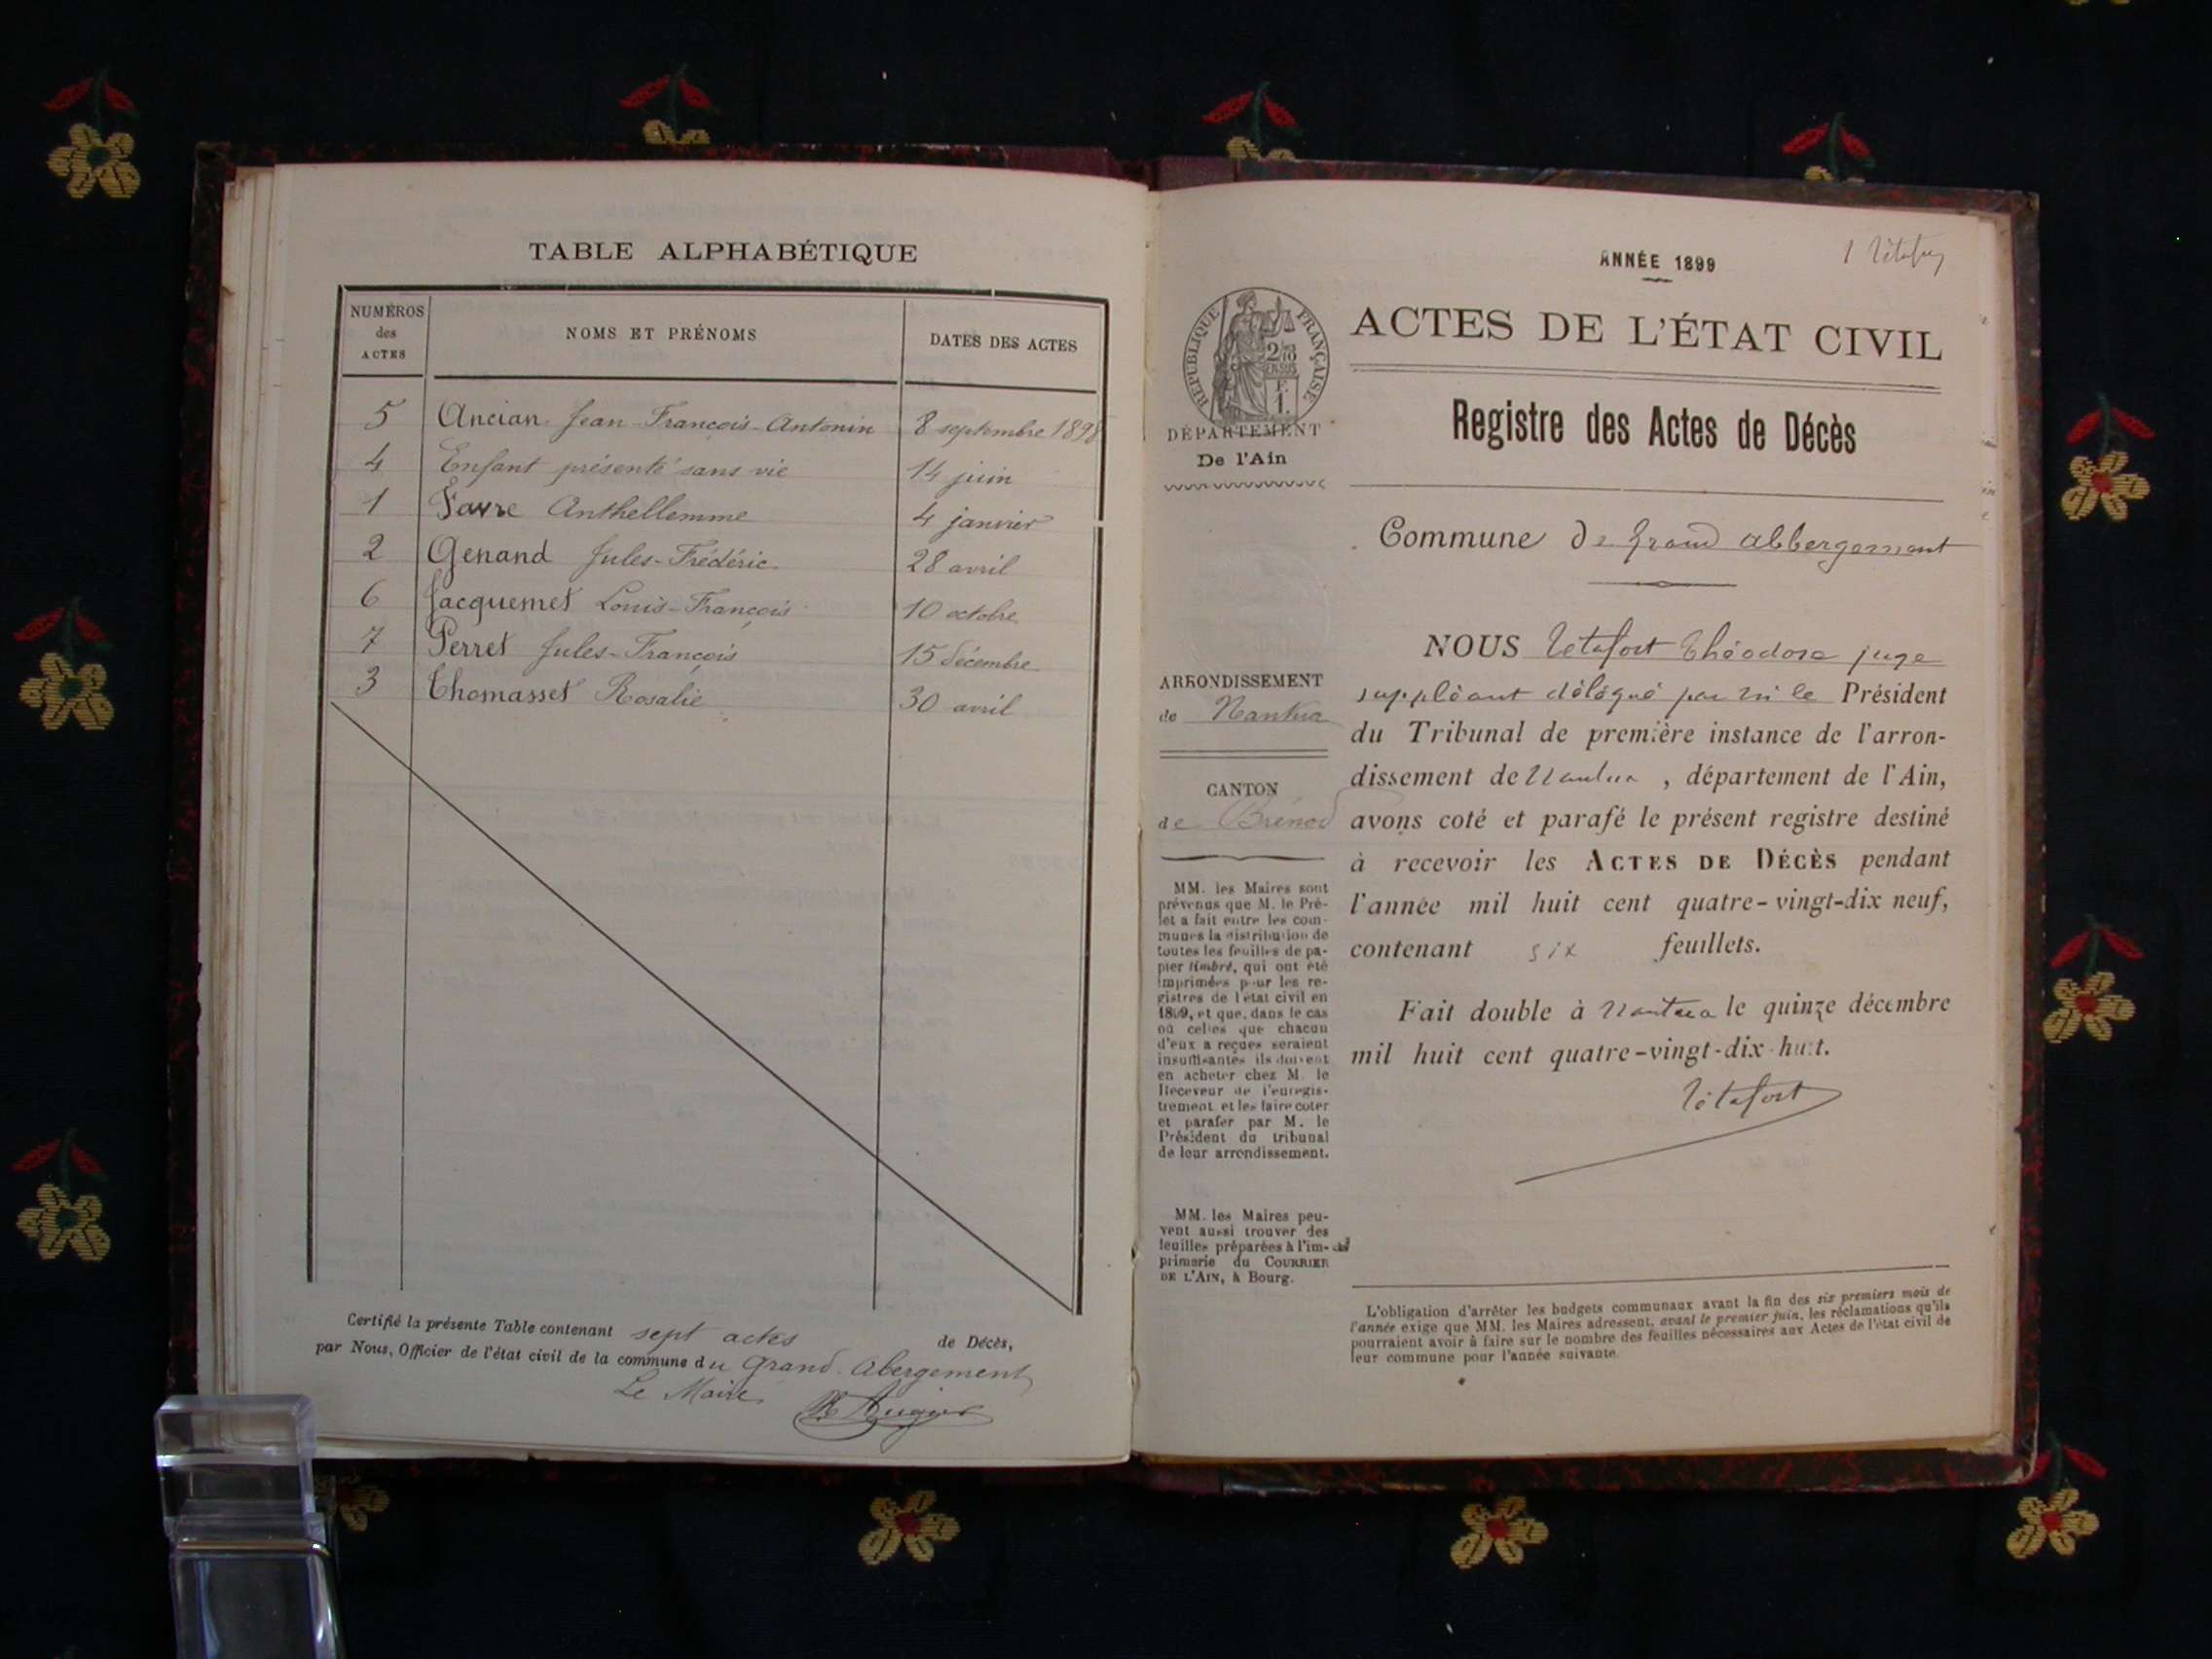 TABLE ALPHABÉTIQUE
NUMÉROS des ACTES NOMS ET PRÉNOMS DATES DES ACTES
5 Ancian Jean-François-Antonin 8 septembre 1898
4 Enfant présenté sans vie 14 juin
1 Favre Anthellemme 4 janvier
2 Genand Jules-Frédéric 28 avril
6 Jacquemet Louis-François 10 octobre
7 Perret Jules-François 15 décembre
3 Thomasset Rosalie 30 avril
Certifié la présente Table contenant sept actes de Décès,
par Nous, Officier de l'état civil de la commune du Grand-Abergement
Le Maire
ANNÉE 1899
1
RÉPUBLIQUE FRANÇAISE
2/10 EN SUS
F.
1.
ACTES DE L'ÉTAT CIVIL
Registre des Actes de Décès
DÉPARTEMENT
De l'Ain
Commune de Grand abbergement
ARRONDISSEMENT
de Nantua
CANTON
de Brénod
MM. les Maires sont
prévenus que M. le Pré-
fet a fait entre les com-
munes la distribution de
toutes les feuilles de pa-
pier timbré, qui ont été
imprimées pour les re-
gistres de l'état civil en
1899, et que, dans le cas
où celles que chacun
d'eux a reçues seraient
insuffisantes ils doivent
en acheter chez M. le
Receveur de l'enregis-
trement et les faire coter
et parafer par M. le
Président du tribunal
de leur arrondissement.
MM. les Maires peu-
vent aussi trouver des
feuilles préparées à l'im-
primerie du COURRIER
DE L'AIN, à Bourg.
NOUS Tétafort Théodore juge
suppléant délégué par M le Président
du Tribunal de première instance de l'arron-
dissement de Nantua, département de l'Ain,
avons coté et parafé le présent registre destiné
à recevoir les ACTES DE DÉCÈS pendant
l'année mil huit cent quatre-vingt-dix neuf,
contenant six feuillets.
Fait double à Nantua le quinze décembre
mil huit cent quatre-vingt-dix-huit.
Tétafort
L'obligation d'arrêter les budgets communaux avant la fin des six premiers mois de
l'année exige que MM. les Maires adressent, avant le premier juin, les réclamations qu'ils
pourraient avoir à faire sur le nombre des feuilles nécessaires aux Actes de l'état civil de
leur commune pour l'année suivante.